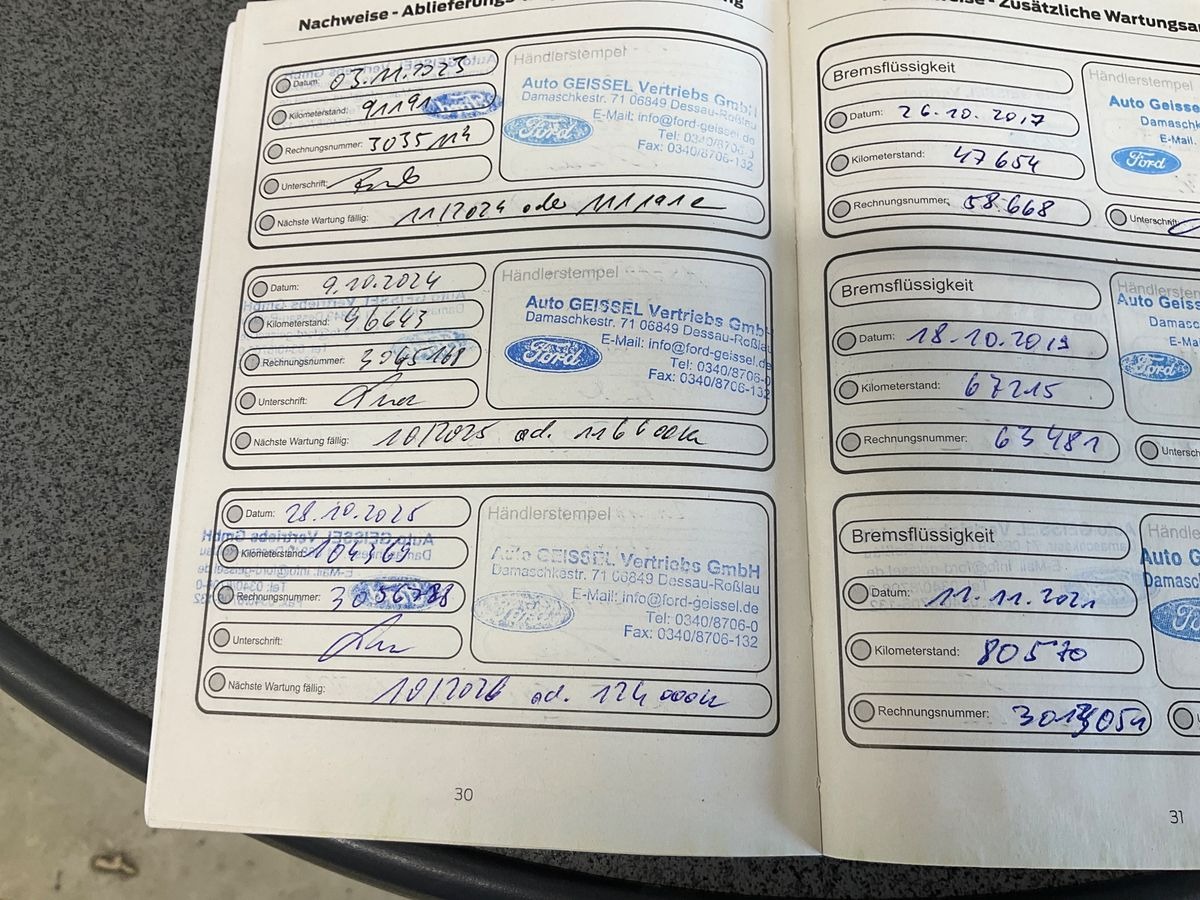 Nachweise - Ablieferungs
Datum: 03.11.2023
Kilometerstand: 91191
Rechnungsnummer: 3035114
Unterschrift:
Nächste Wartung fällig: 11/2024 oder
Händlerstempel
Auto GEISSEL Vertriebs GmbH
Damaschkestr. 71 06849 Dessau-Roßlau
E-Mail: info@ford-geissel.de
Ford
Tel: 0340/8706-0
Fax: 0340/8706-132
Datum: 9.10.2024
Kilometerstand: 96643
Rechnungsnummer: 3045168
Unterschrift:
Nächste Wartung fällig: 10/2025 od. 116 000k
Händlerstempel
Auto GEISSEL Vertriebs GmbH
Damaschkestr. 71 06849 Dessau-Roßlau
E-Mail: info@ford-geissel.de
Ford
Tel: 0340/8706-0
Fax: 0340/8706-132
Datum: 28.10.2025
Kilometerstand: 104369
Rechnungsnummer: 3056788
Unterschrift:
Nächste Wartung fällig: 10/2026 od. 124 000k
Händlerstempel
Auto GEISSEL Vertriebs GmbH
Damaschkestr. 71 06849 Dessau-Roßlau
E-Mail: info@ford-geissel.de
Ford
Tel: 0340/8706-0
Fax: 0340/8706-132
30
Zusätzliche
Bremsflüssigkeit
Datum: 26.10.2017
Kilometerstand: 47654
Rechnungsnummer: 58.668
Unterschrift:
Händlerstempel
Auto
E-Mail.
Ford
Bremsflüssigkeit
Datum: 18.10.2019
Kilometerstand: 67215
Rechnungsnummer: 63481
Auto
Ford
Bremsflüssigkeit
Datum: 11.11.2021
Kilometerstand: 80570
Rechnungsnummer:
Auto
31